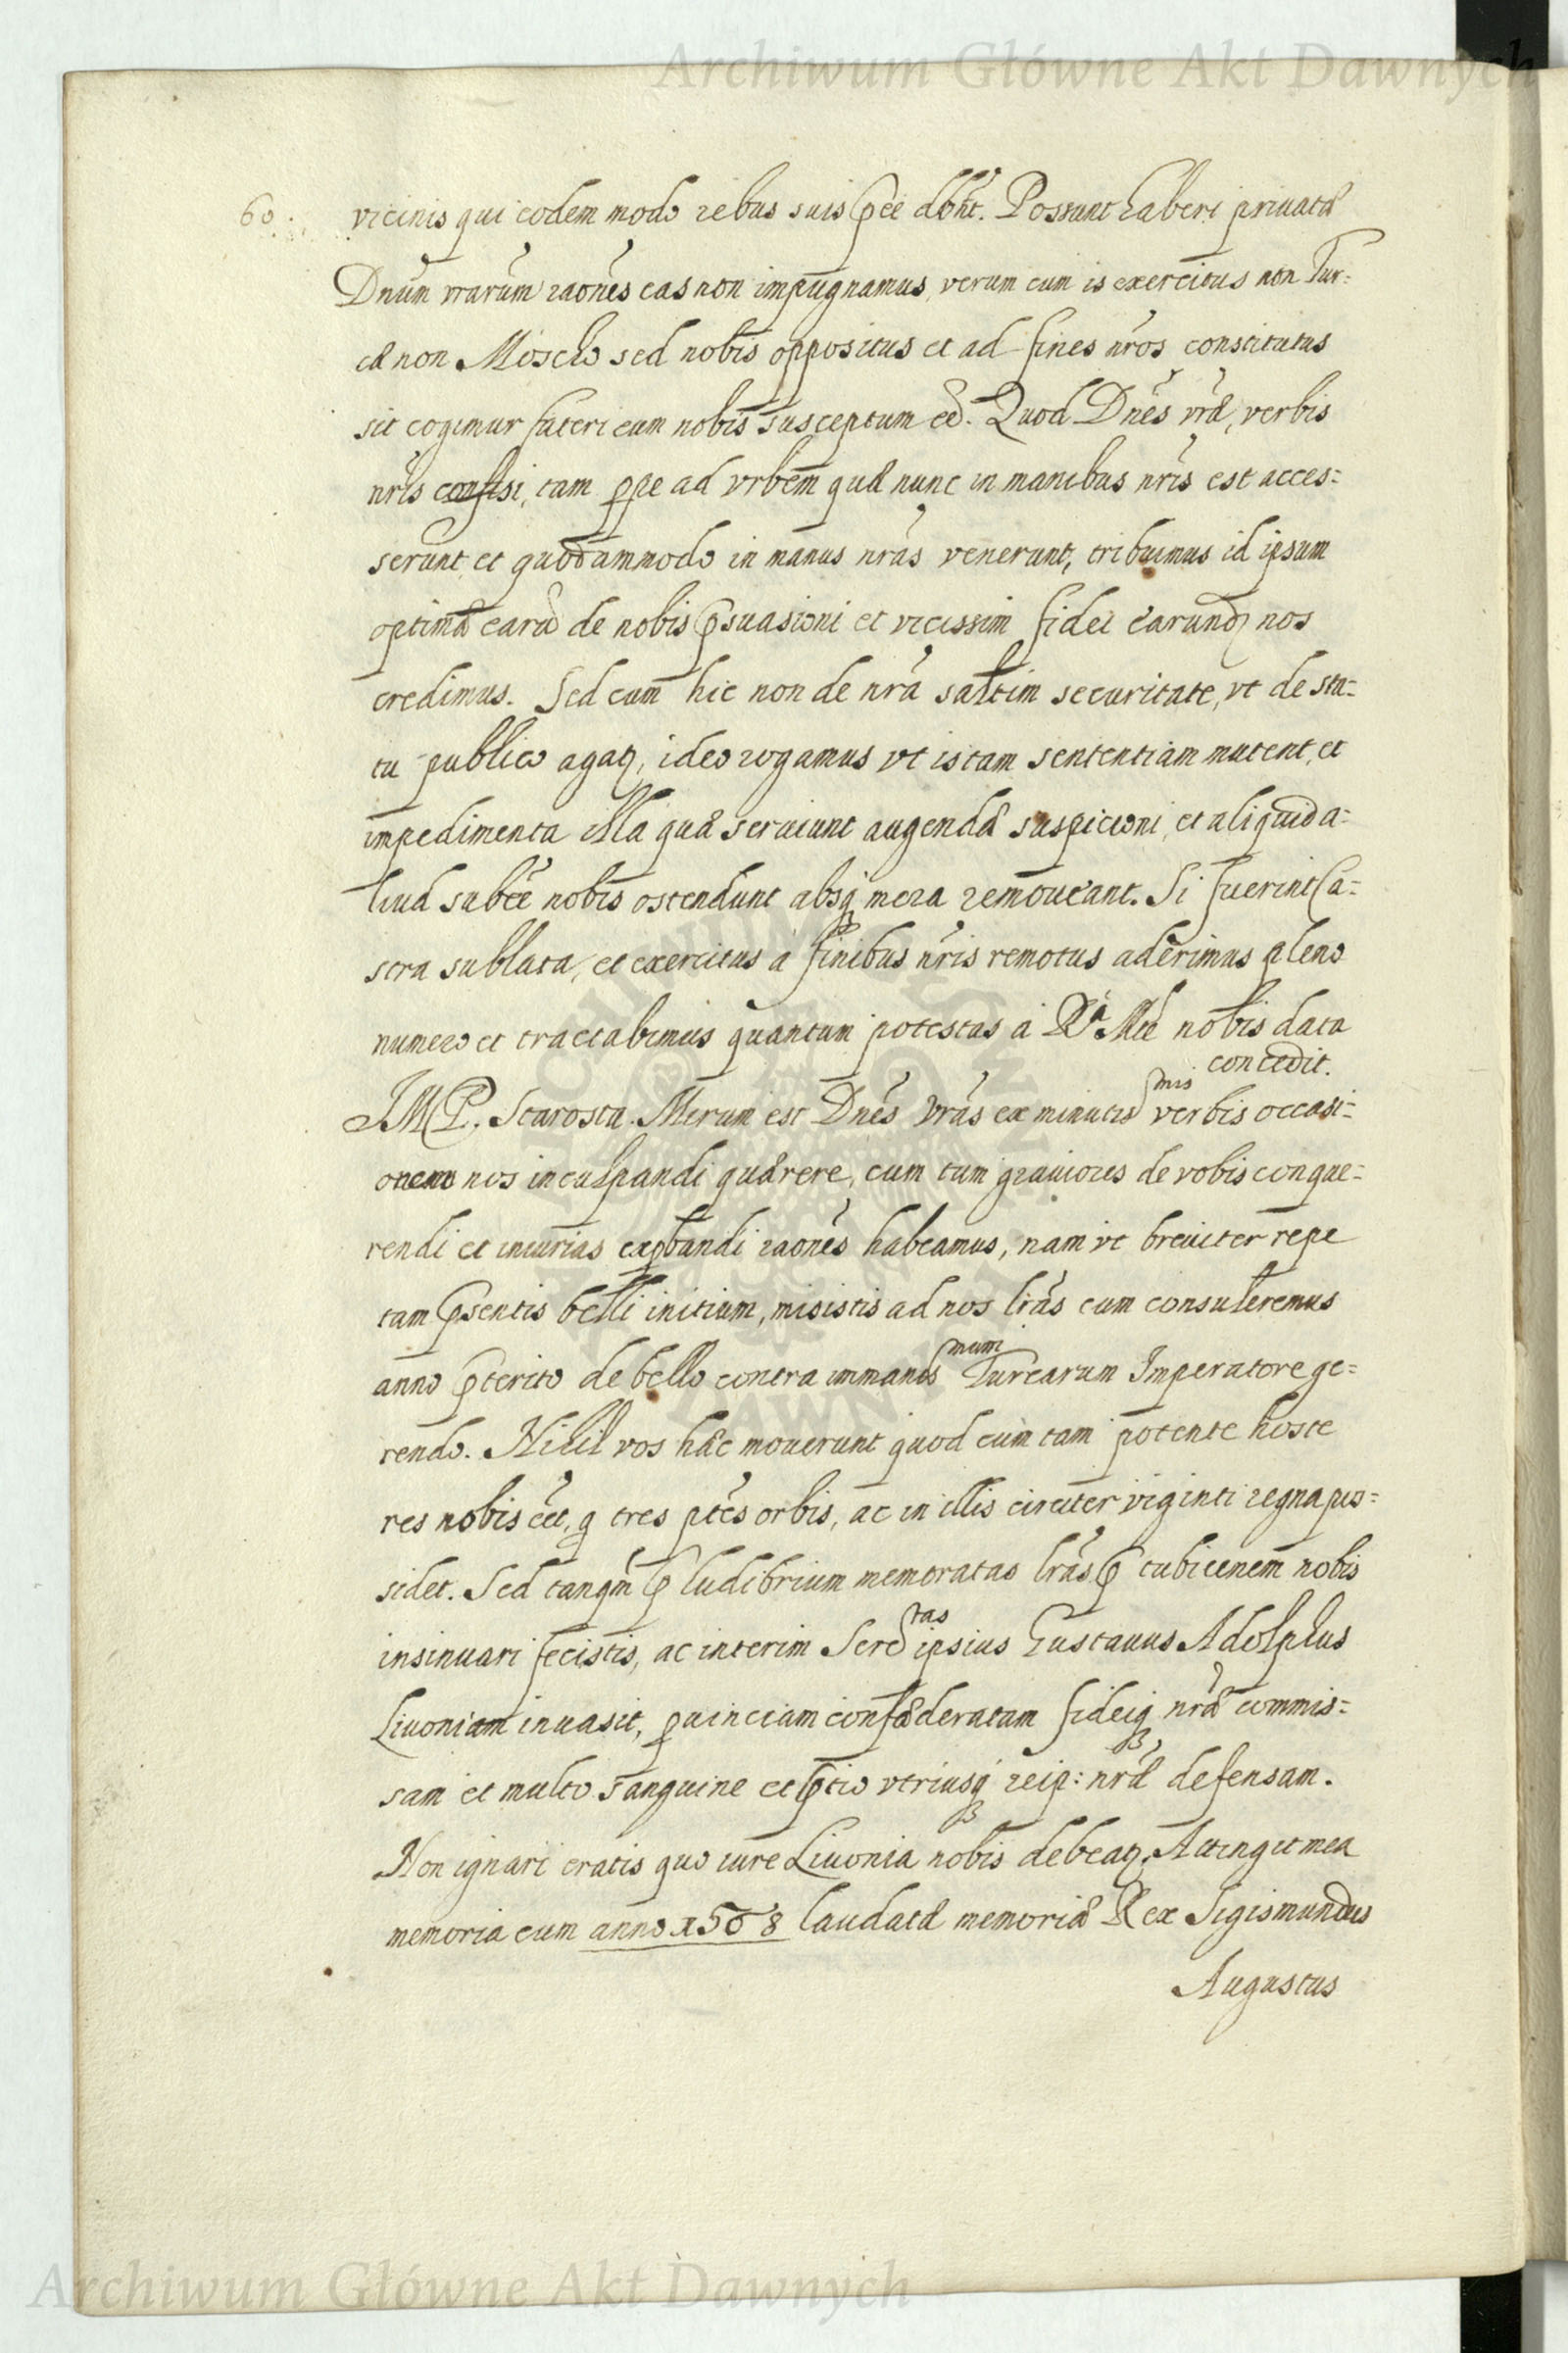 Archiwum Główne Akt Dawnych
60.
vicinis qui eodem modo rebus suis p̄ee dbn̄t. Possunt haberi privatæ
Dnūm vrarūm raōnes eas non impugnamus, verum cum is exercitus non Tur=
cæ non Moscho sed nobis oppositus et ad fines nr̄os constitutus
sit cogimur fateri eum nobis susceptum eē. Quod Dnēs vr̄æ, verbis
nr̄is confisi, tam ꝓpe ad vrbem quæ nunc in manibus nr̄is est acces=
serunt et quodammodo in manus nr̄as venerunt, tribuimus id ipsum
optimæ earū de nobis p̄suasioni et vicissim fidei earundꝫ nos
credimus. Sed cum hic non de nr̄a saltim securitate, vt de sta=
tu publico agaꝶ, ideo rogamus vt istam sententiam mutent, et
impedimenta illa quæ seruiunt augendæ suspicioni, et aliquid a=
liud subēe nobis ostendunt absqꝫ mora remoueant. Si fuerint ca=
stra sublata, et exercitus a finibus nr̄is remotus aderimus pleno
numero et tractabimus quantum potestas a Rᵃ Mte nobis data
concedit.
JMP. Starosta. Mirum est Dnēs Vrās ex minutis mis verbis occasi=
onem nos inculpandi quærere, cum tum grauiores de vobis conque=
rendi et iniurias exꝓbrandi raōnes habeamus, nam vt breuiter repe
tam p̄sentis belli initium, misistis ad nos lr̄as cum consuleremus
anno p̄terito de bello contra immanis mum Turcarum Imperatore ge=
rendo. Nihil vos hæc mouerunt quod cum tam potente hoste
res nobis eēt, q tres ptēs orbis, ac in illis circiter viginti regna pos=
sidet. Sed tanqm̄ p̄ ludibrium memoratas lr̄as p̄ tubicenem nobis
insinuari fecistis, ac interim Sere tas ipsius Gustauus Adolphus
Liuoniam inuasit, ꝓuinciam confæderatam fideiqꝫ nr̄æ commis=
sam et multo sanguine et p̄tio vtriusqꝫ reip: nr̄æ defensam.
Non ignari eratis quo iure Liuonia nobis debeaꝶ. Attingit mea
memoria cum anno 1568 laudatæ memoriæ Rex Sigismundus
Augustus
Archiwum Główne Akt Dawnych